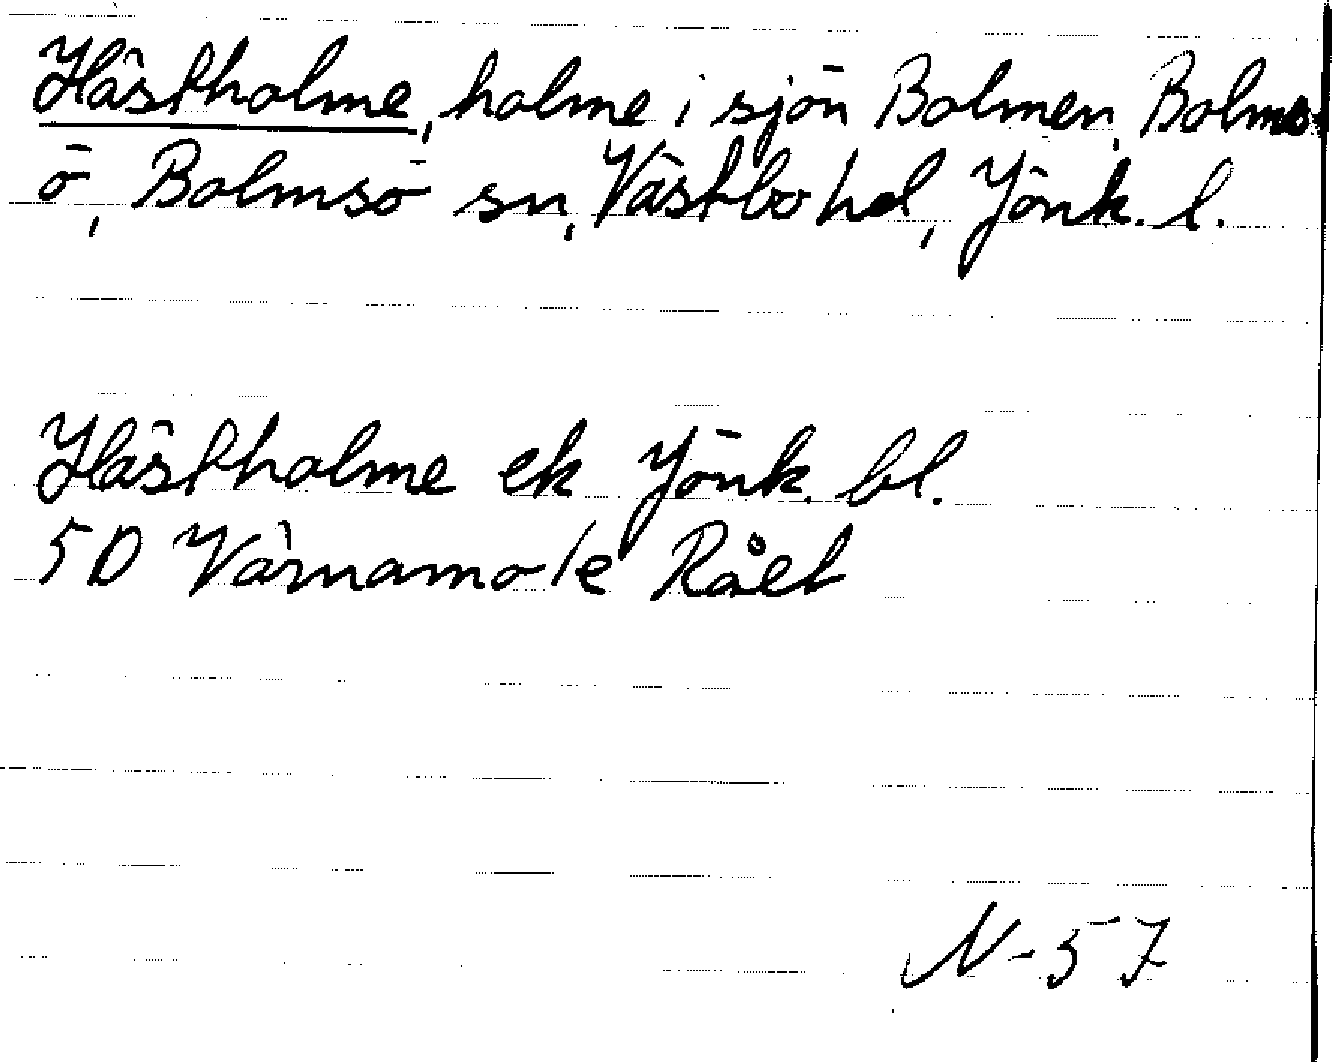 Hästholme, holme i sjön Bolmen, Bolms
ö, Bolmsö sn, Västbo hd, Jönk. l.
Hästholme ek Jönk. bl.
5D Värnamo /e Rået
N-57